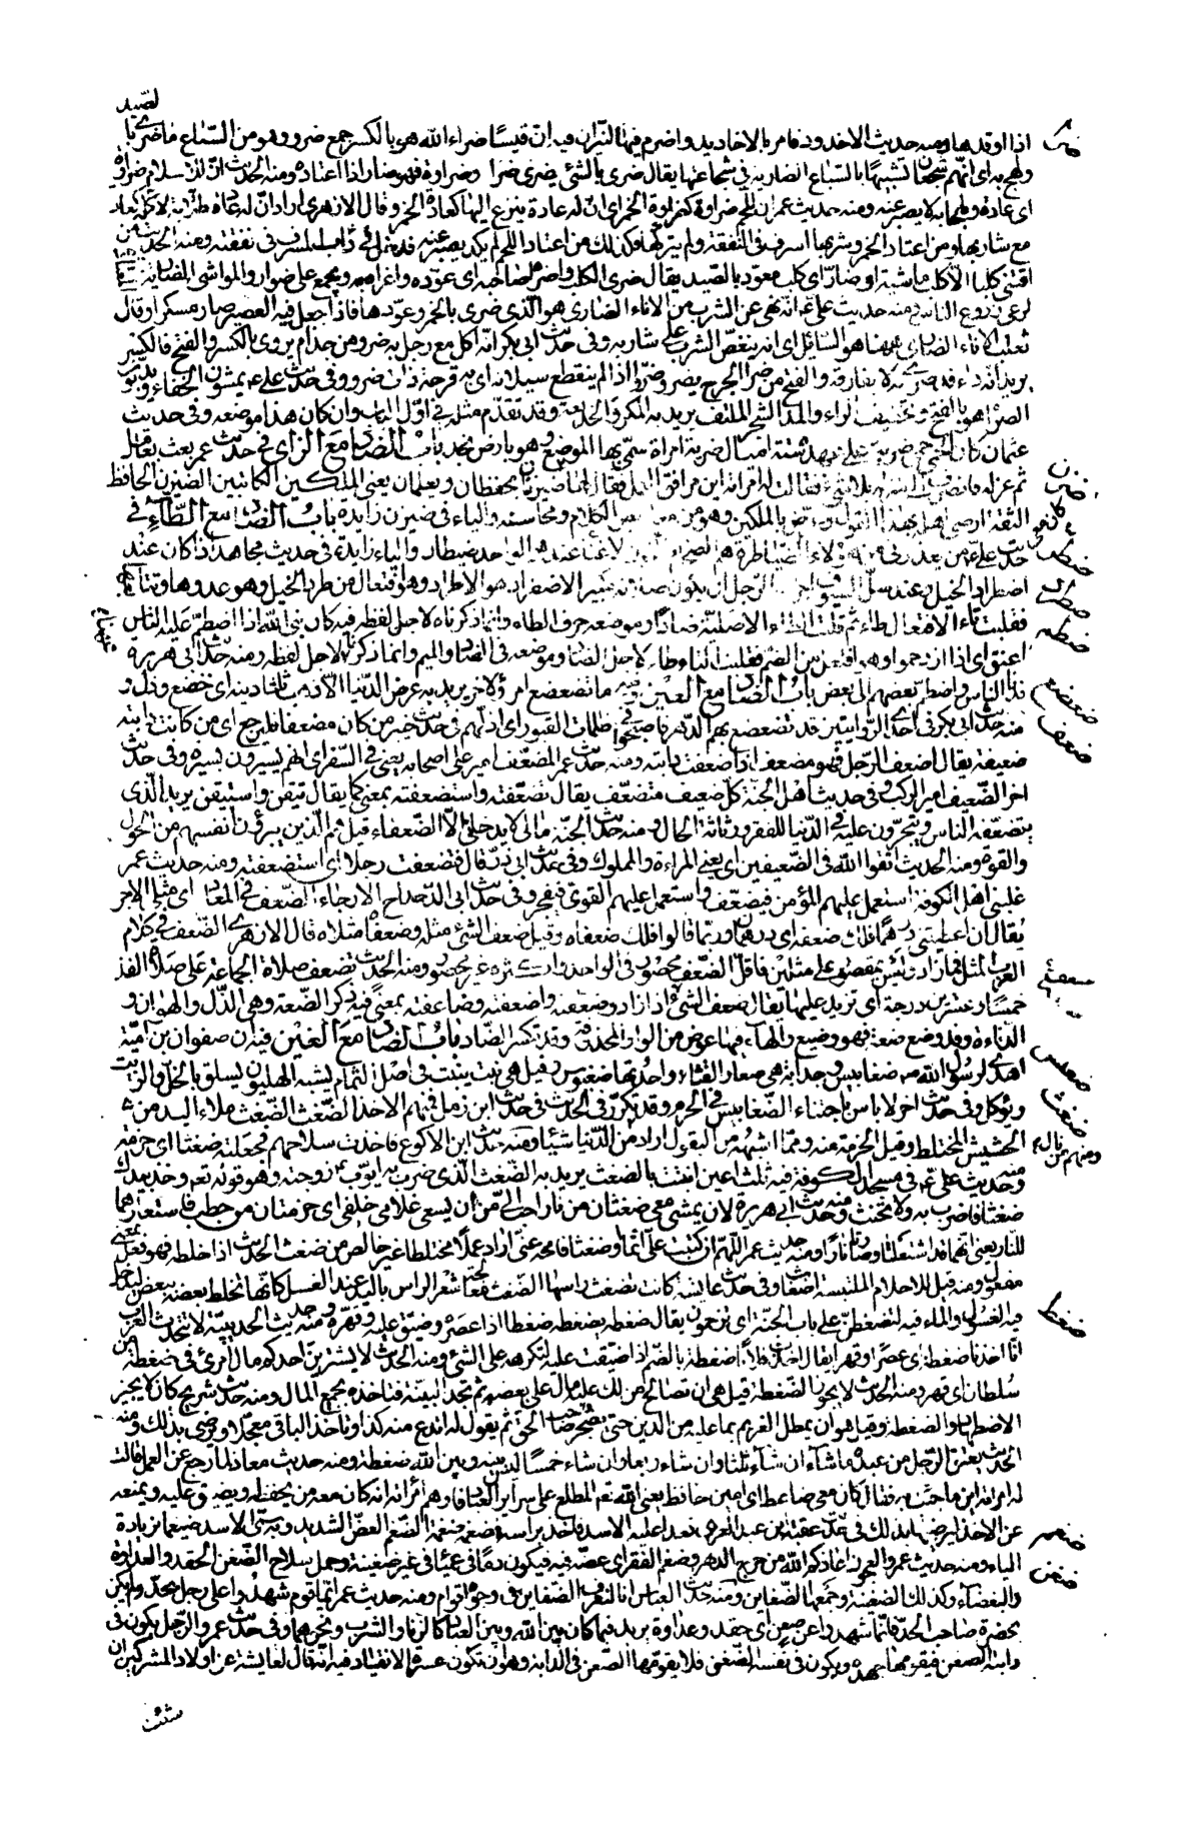 لصّيد
اذا اوقدها ومنه حديث الاخدود فامر بالاخاديد واضرم فيها النّيران فيه انّ قيسًا ضراء الله هو بالكسر جمع ضرو وهو من السّباع ما ضرى با
ولهج به اى انّهم شجعان تشبيهًا بالسّباع الضاريه فى شجاعتها يقال ضرى بالشئ يضرى ضرا وضراوة فهو ضار اذا اعتاده ومنه الحديث انّ للاسلام ضراوة
اى عادة ولهجا به لا يصبر عنه ومنه حديث عمر ان للّحم ضراوة كضراوة الخمر اى انّ له عادة ينزع اليها كعادة الخمر وقال الازهرى اراد انّ له عادة طلّابة لاكله كعادة
مع شاربها ومن اعتاد الخمر وشربها اسرف فى النّفقة ولم يتركها وكذلك من اعتاد اللحم لم يكد يصبر عنه فدخل فى دأب المسرف فى نفقته ومنه الحديث من
اقتنى كلبا الا كلب ماشية او ضار اى كلب معوّد بالصّيد يقال ضرى الكلب واضراه صاحبه اى عوّده واغراه به ويجمع على ضوار والمواشى الضارية
لرعى زروع الناس ومنه حديث على عم انه نهى عن الشرب من الاناء الضارى هو الّذى ضرى بالخمر وعوّد بها فاذا جعل فيه العصير صار مسكرا وقال
ثعلب الاناء الضارى هيهنا هو السائل اى انه ينغّص الشرب على شاربه وفى حديث ابى بكر انّه اكل مع رجل به ضرو من جذام يروى بالكسر والفتح فالكسر
يريد انه داء قد ضرى به لا يفارقه والفتح من ضرا الجرح يضرو ضروا اذا لم ينقطع سيلانه اى به قرحة ذات ضرو وفى حديث على عم يمشون الخفاء ويدبّون
الضراء هو بالفتح وتخفيف الراء والمد الشجر الملتف يريد به المكر والخديعة وقد تقدّم مثله فى اوّل الباب وان كان هذا موضعه وفى حديث
عثمان كان الحمى حمى ضرية على عهده ستة اميال ضرية امراة سمّى بها الموضع وهو بارض نجد باب الضاد مع الزاى فى حديث عمر بعث بعامل
ثم عزله فانصرف الى منزله بلا شئ فقالت له امراته اين مرافق العمل فقال لها كان معى ضيزنان يحفظان ويعلمان يعنى الملكين الكاتبين الضيزن الحافظ
الثقة ارضى اهله بهذا القول وعرّض بالملكين وهو من معاريض الكلام ومحاسنه والياء فى ضيزن زايدة باب الضاد مع الطّاء فى
حديث على عم من يعذرنى من هؤلاء الضياطرة هم الضخام الذين لا غناء عندهم الواحد ضيطار والياء زايدة فى حديث مجاهد اذا كان عند
اضطراد الخيل وعند سلّ السّيوف اجزا الرّجل ان يكون صلوته تكبير الاضطراد هو الاطراد وهو افتعال من طراد الخيل وهو عدوها وتتابعها
فقلبت تاء الافتعال طاء ثم قلبت الطاء الاصليّة ضادًا وموضعه حرف الطاء وانما ذكرناه لاجل لفظه فيه كان نبى الله اذا اضطمّ عليه الناس
اعنق اى اذا ازدحموا وهو افتعل من الضمّ فقلبت التاء طاء لاجل الضاد وموضعه فى الضاد والميم وانما ذكرناه لاجل لفظه ومنه حديث ابى هريرة
فدنا الناس واضطمّ بعضهم الى بعض باب الضاد مع العين وفيه ما تضعضع امرؤ لاخر يريد به عرض الدّنيا الّا ذهب ثلثا دينه اى خضع وذلّ و
منه حديث ابى بكر فى احدى الرّوايتين قد تضعضع بهم الدّهر فاصبحوا فى ظلمات القبور اى اذلّهم فى حديث خيبر من كان مضعفا فليرجع اى من كانت دابته
ضعيفة يقال اضعف الرّجل فهو مضعف اذا ضعفت دابته ومنه حديث عمر المضعف امير على اصحابه يعنى فى السّفر اى انهم يسيرون بسيره وفى حديث
اخر الضّعيف امير الركب وفى حديث اهل الجنة كلّ ضعيف متضعّف يقال تضعّفته واستضعفته بمعنى كما يقال تيقّن واستيقن يريد الّذى
يتضعّفه الناس ويتجبّرون عليه فى الدّنيا للفقر ورثاثة الحال ومنه حديث الجنّة مالى لا يدخلنى الّا الضّعفاء قيل هم الّذين يبرّؤن انفسهم من الحول
والقوة ومنه الحديث اتّقوا الله فى الضّعيفين اى يعنى المراءة والمملوك وفى حديث ابى ذر قال فتضعفت رجلا اى استضعفته ومنه حديث عمر
غلبنى اهل الكوفة استعمل عليهم المؤمن فيضعّف واستعمل عليهم القوى فيفجر وفى حديث ابى الدّحداح الا رجاء الضّعف فى المعاد اى مثلى الاجر
يقال ان اعطيتنى درهمًا فلك ضعفه اى درهمان وربّما قالوا فلك ضعفاه وقيل ضعف الشئ مثله وضعفاه مثلاه قال الازهرى الضّعف فى كلام
العرب المثل فما زاد وليس بمقصور على مثلين فاقلّ الضّعف محصور فى الواحد واكثره غير محصور ومنه الحديث تضعف صلاة الجماعة على صلاة الفذ
خمسًا وعشرين درجة اى تزيد عليها يقال ضعف الشئ اذا زاد وضعفته واضعفته وضاعفته بمعنى فيه ذكر الضّعة وهى الذّل والهوان و
الدّناءة وقد وضع ضعة فهو وضيع والهاء فيها عوض من الواو المحذوفة وقد تكسر الضّاد باب الضاد مع الغين فيه ان صفوان بن اميّة
اهدى لرسول الله ص ضغابيس وجداية هى صغار القثاء واحدتها ضغبوس وقيل هى نبت ينبت فى اصل الثمام يشبه الهليون يسلق بالخلّ والزّيت
ويؤكل وفى حديث اخر لا باس باجتناء الضّغابيس فى الحرم وقد تكرّر فى الحديث فى حديث ابن زمل فمنهم الاخذ الضّغث الضّغث ملاء اليد من
الحشيش المختلط وقيل الحزمة منه وممّا اشبهه من البقول اراد من الدّنيا شيئا ومنه حديث ابن الاكوع فاخذت سلاحهم فجعلته ضغثا اى حزمة
ومنه حديث على عم فى مسجد الكوفة فيه ثلث اعين انبتت بالضغث يريد به الضّغث الّذى ضرب به ايّوب عم زوجته وهو قوله تعم وخذ بيدك
ضغثا فاضرب به ولا تحنث ومنه حديث ابى هريرة لان يمشى معى ضغثان من نار احبّ الىّ من ان يسعى غلامى خلفى اى حزمتان من حطب فاستعارهما
للنار يعنى انهما قد اشتعلتا وصارتا نارًا ومنه حديث عمر اللّهمّ ان كتبت علىّ اثما او ضغثا فامحه عنى اراد عملًا مختلطا غير خالص من ضغث الحديث اذا خلطه فهو فعل بمعنى
مفعول ومنه قيل للاحلام الملتبسة اضغاث وفى حديث عايشة كانت تضغث راسها الضّغث معالجة شعر الراس باليد عند الغسل كانّها تخلط بعضه ببعض ليدخل
فيه الغسول والماء فيه لتضغطنّ على باب الجنّة اى تزحمون يقال ضغطه يضغطه ضغطا اذا عصره وضيّق عليه وقهره ومنه حديث الحديبيّة لا تتحدّث العرب
انّا اخذنا ضغطة اى عصرًا وقهرا يقال اخذت فلانا ضغطة بالضّم اذا ضيّقت عليه لتكرهه على الشئ ومنه الحديث لا يشترينّ احدكم مال امرئ فى ضغطة من
سلطان اى قهر ومنه الحديث لا يجوز الضّغطة قيل هى ان تصالح من لك عليه مال على بعضه ثم تجد البيّنة فتاخذه بجميع المال ومنه حديث شريح كان لا يجيز
الاضطهاد والضغطة وقيل هو ان يمطل الغريم بما عليه من الدين حتى يضجر صاحب الحق ثم يقول له اتدع منه كذا وتاخذ الباقى معجّلا ويرضى بذلك ومنه
الحديث يعتق الرّجل من عبده ما شاء ان شاء ثلثا وان شاء ربعا وان شاء خمسًا ليس بينه وبين الله ضغطة ومنه حديث معاذ لما رجع عن العمل قالت
له امراته اين ما جئت به فقال كان معى ضاغط اى امين حافظ يعنى الله تعم المطلع على سراير العباد فاوهم امراته انه كان معه من يحفظه ويضيق عليه ويمنعه
عن الاخذ ليرضيها بذلك فى حديث عتبة بن عبد العزى فعدا عليه الاسد فاخذ براسه فضغمه ضغمة الضّغم العضّ الشديد وبه سمّى الاسد ضيغما بزيادة
الياء ومنه حديث عمر والعجوز اعاذكم الله من جرح الدهر وضغم الفقر اى عضّه فيه فيكون دمًا فى عميّا فى غير ضغينة وحمل سلاح الضّغن الحقد والعداوة
والبغضاء وكذلك الضغينة وجمعها الضّغاين ومنه حديث العباس انا لنعرف الضّغاين فى وجوه اقوام ومنه حديث عمر ايّما قوم شهدوا على رجل بحدّ ولم يكن
بحضرة صاحب الحدّ فانّما شهدوا عن ضغن اى حقد وعداوة يريد فيما كان بين الله وبين العباد كالزنا والشرب ونحوهما وفى حديث عمرو الرّجل يكون فى
دابته الضغن فيقومها جهده ويكون فى نفسه الضّغن فلا يقومها الضّغن فى الدابة وهو ان تكون عسرة الانقياد فيه انه قال لعايشة عن اولاد المشركين ان
شئت
ضرا
ضزن
ضطر
ضطرد
ضطم
ضعضع
ضعف
ضعة
ضغبس
ضغث
ومنهم من نال
ضغط
ضغم
ضغن